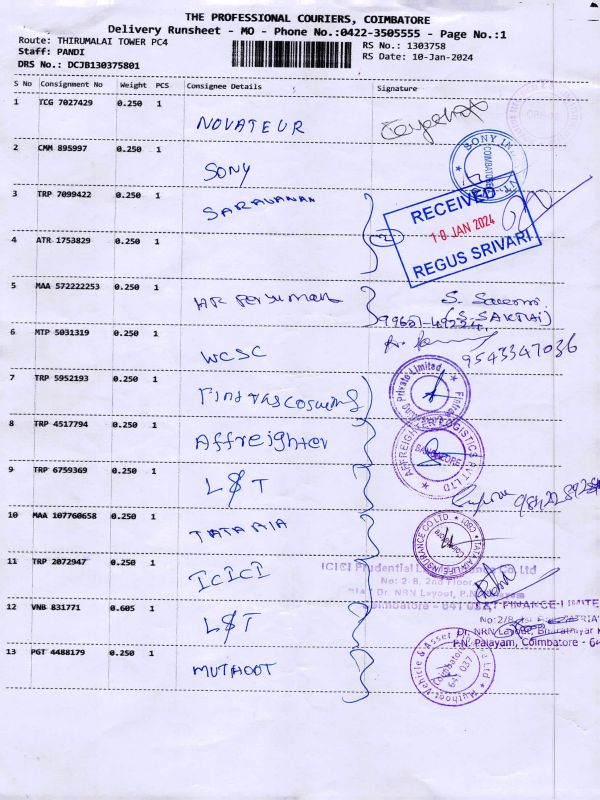 THE PROFESSIONAL COURIERS, COIMBATORE
Delivery Runsheet - MO - Phone No.:0422-3505555 - Page No.:1
Route: THIRUMALAI TOWER PC4
Staff: PANDI
DRS No.: DCJB130375801
RS No.: 1303758
RS Date: 10-Jan-2024
S No Consignment No Weight PCS Consignee Details Signature
1 TCG 7027429 0.250 1 NOVATEUR
2 CMM 895997 0.250 1 SONY
SONY IN
COIMBATORE
3 TRP 7099422 0.250 1 SARAVANAN
RECEIVED
10 JAN 2024
REGUS SRIVARI
4 ATR 1753829 0.250 1
5 MAA 572222253 0.250 1 HR Perumal
(S. SAKTHI)
6 MTP 5031319 0.250 1 WCSC 9543347036
7 TRP 5952193 0.250 1
Private Limited
8 TRP 4517794 0.250 1 Affreighter
AFFREIGHTER LOGISTICS PVT LTD
9 TRP 6759369 0.250 1 L&T
10 MAA 107760658 0.250 1 TATA AIA
TATA AIA LIFE INSURANCE CO LTD.
11 TRP 2072947 0.250 1 ICICI
ICICI Prudential Life Insurance Co Ltd
No: 2-8, 2nd Floor,
Dr. NRN Layout, P.N. Palayam
Coimbatore - 641
12 VNB 831771 0.605 1 L&T
L&T FINANCE LIMITED
No: 2/8
Dr. NRN Layout, Bharathiyar
P.N. Palayam, Coimbatore - 64
13 PGT 4488179 0.250 1 MUTHOOT
Muthoot Vehicle & Asset
Coimbatore
641 037